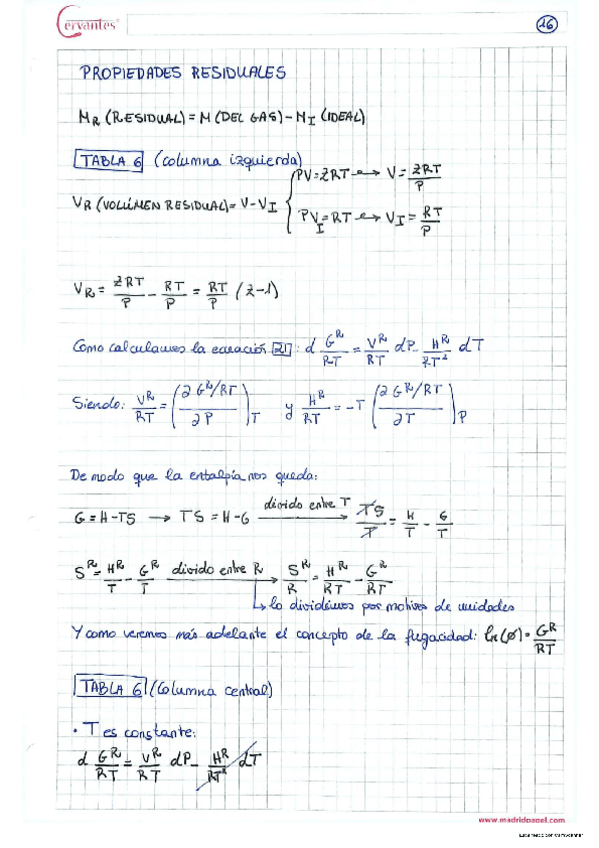 Cervantes®
16
PROPIEDADES RESIDUALES
M_R (RESIDUAL) = M (DEL GAS) - M_I (IDEAL)
TABLA 6 (columna izquierda)
V_R (VOLÚMEN RESIDUAL) = V - V_I { PV = ZRT ⟷ V = ZRT/P
PV_I = RT ⟷ V_I = RT/P
V_R = ZRT/P - RT/P = RT/P (Z-1)
Como calculamos la ecuación 21: d G^R/RT = V^R/RT dP - H^R/RT² dT
Siendo: V^R/RT = (∂ G^R/RT / ∂P)_T y H^R/RT = -T (∂ G^R/RT / ∂T)_P
De modo que la entalpía nos queda:
G = H - TS → TS = H - G divido entre T → TS/T = H/T - G/T
S^R = H^R/T - G^R/T divido entre R → S^R/R = H^R/RT - G^R/RT
↳ lo dividimos por motivos de unidades
Y como veremos más adelante el concepto de la fugacidad: ln(ø) = G^R/RT
TABLA 6 (Columna central)
· T es constante:
d G^R/RT = V^R/RT dP - H^R/RT² dT
www.madridpapel.com